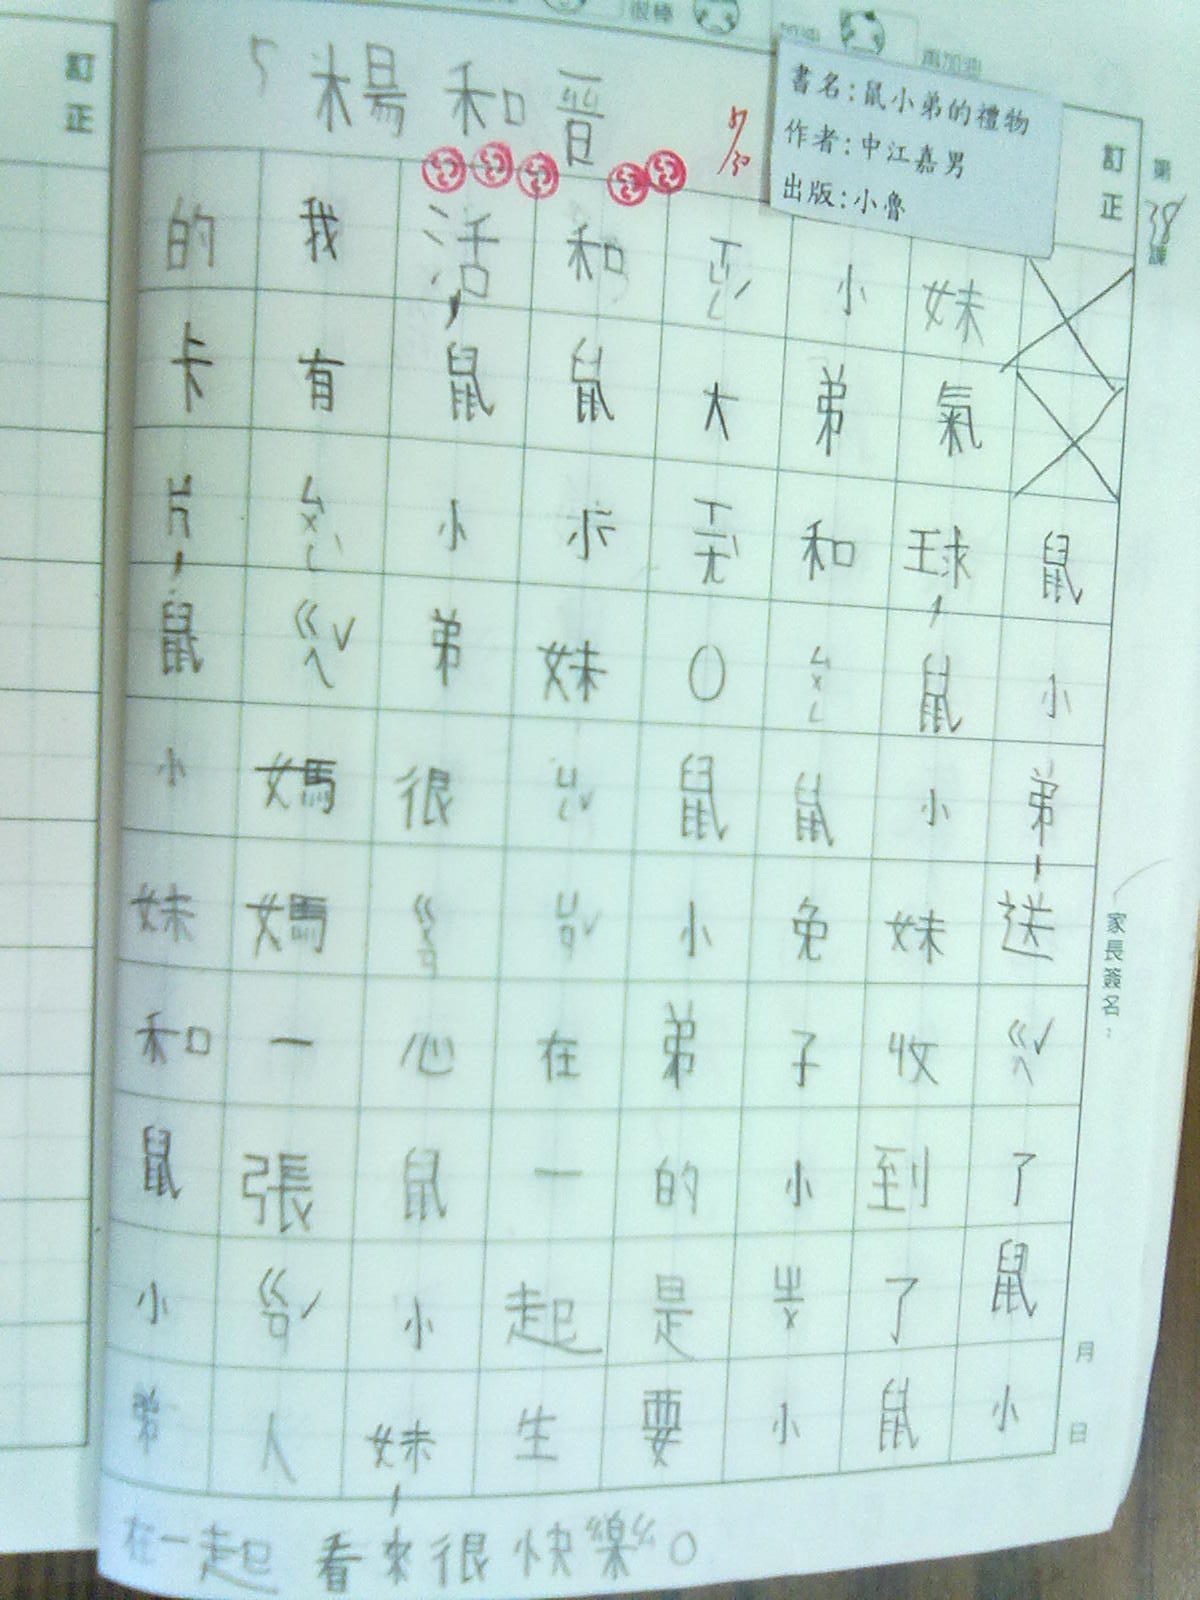 5 楊和晉
7/30
書名:鼠小弟的禮物
作者:中江嘉男
出版:小魯
訂正
第38課
鼠小弟,送ㄍㄟˇ了鼠小
妹氣球,鼠小妹收到了鼠
小弟和ㄙㄨㄥ鼠免子小ㄓㄨ小
大。鼠小弟的是要
和鼠小妹在一起生
活,鼠小弟很心鼠小妹,
我有ㄙㄨㄥˋㄍㄟˇ媽媽一張人
的卡片,鼠小妹和鼠小弟
在一起看來很快樂。
家長簽名:
月 日
訂正
很棒
再加油